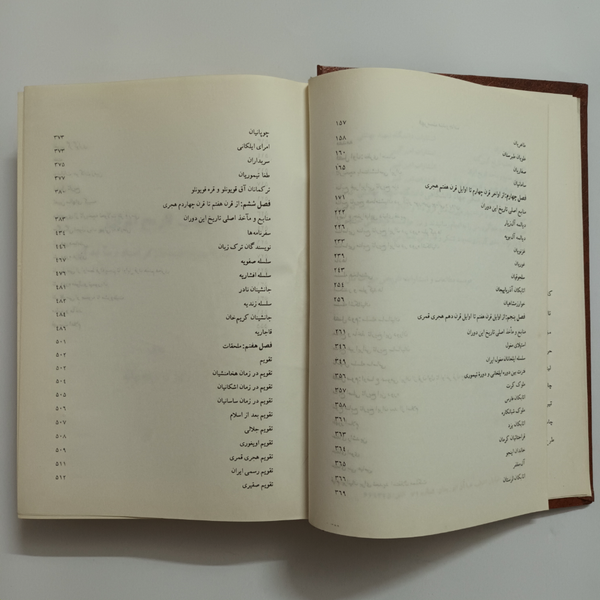 طاهریان ۱۵۷
علویان طبرستان ۱۵۸
صفاریان ۱۶۰
سامانیان ۱۶۵
فصل چهارم: از اواخر قرن چهارم تا اوایل قرن هفتم هجری
منابع اصلی تاریخ این دوران ۱۷۱
دیالمه آل‌زیار ۲۲۲
دیالمه آل بویه ۲۲۶
غزنویان ۲۳۳
غوریان
سلجوقیان ۲۴۳
اتابکان آذربایجان ۲۵۴
خوارزمشاهیان ۲۵۶
فصل پنجم: از اوایل قرن هفتم تا اوایل قرن دهم هجری قمری
منابع و مآخذ اصلی تاریخ این دوران ۲۶۱
استیلای مغول ۳۴۶
سلسله ایلخانان مغول ایران ۳۴۹
فترت بین دوره ایلخانی و دورهٔ تیموری ۳۵۶
ملوک کرت ۳۵۷
اتابکان فارس ۳۵۸
ملوک شبانکاره ۳۶۱
اتابکان یزد ۳۶۳
قراختائیان کرمان ۳۶۴
خاندان اینجو ۳۶۵
آل‌مظفر ۳۶۶
اتابکان لرستان ۳۶۹
چوپانیان ۳۷۳
امرای ایلکانی ۳۷۳
سربداران ۳۷۵
طغا تیموریان ۳۷۷
ترکمانان آق قویونلو و قره قویونلو ۳۸۰
فصل ششم: از قرن هفتم تا قرن چهاردهم هجری
منابع و مآخذ اصلی تاریخ این دوران ۳۸۳
سفرنامه‌ها ۴۳۴
نویسندگان ترک زبان ۴۴۶
سلسله صفویه ۴۶۷
سلسله افشاریه ۴۷۶
جانشینان نادر ۴۸۱
سلسله زندیه ۴۸۲
جانشینان کریم‌خان ۴۸۴
قاجاریه ۴۸۶
فصل هفتم: ملحقات ۵۰۱
تقویم ۵۰۲
تقویم در زمان هخامنشیان ۵۰۲
تقویم در زمان اشکانیان ۵۰۴
تقویم در زمان ساسانیان ۵۰۵
تقویم بعد از اسلام ۵۰۶
تقویم جلالی ۵۰۷
تقویم اویغوری ۵۰۸
تقویم هجری قمری ۵۰۹
تقویم رسمی ایران ۵۱۱
تقویم صفیری ۵۱۲